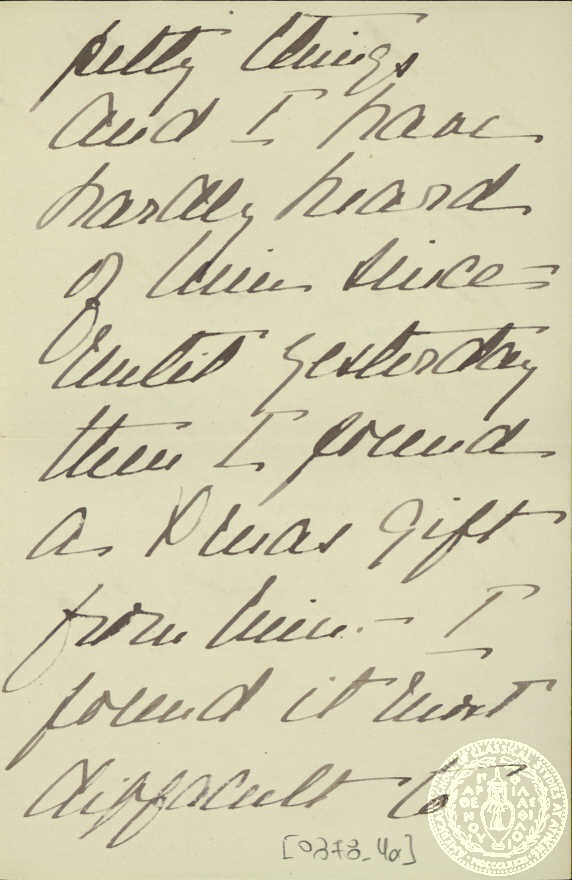 petty things
and I have
hardly heard
of him since –
Until yesterday
then I found
a Xmas gift
from him. – I
found it most
difficult to
[0378_4a]